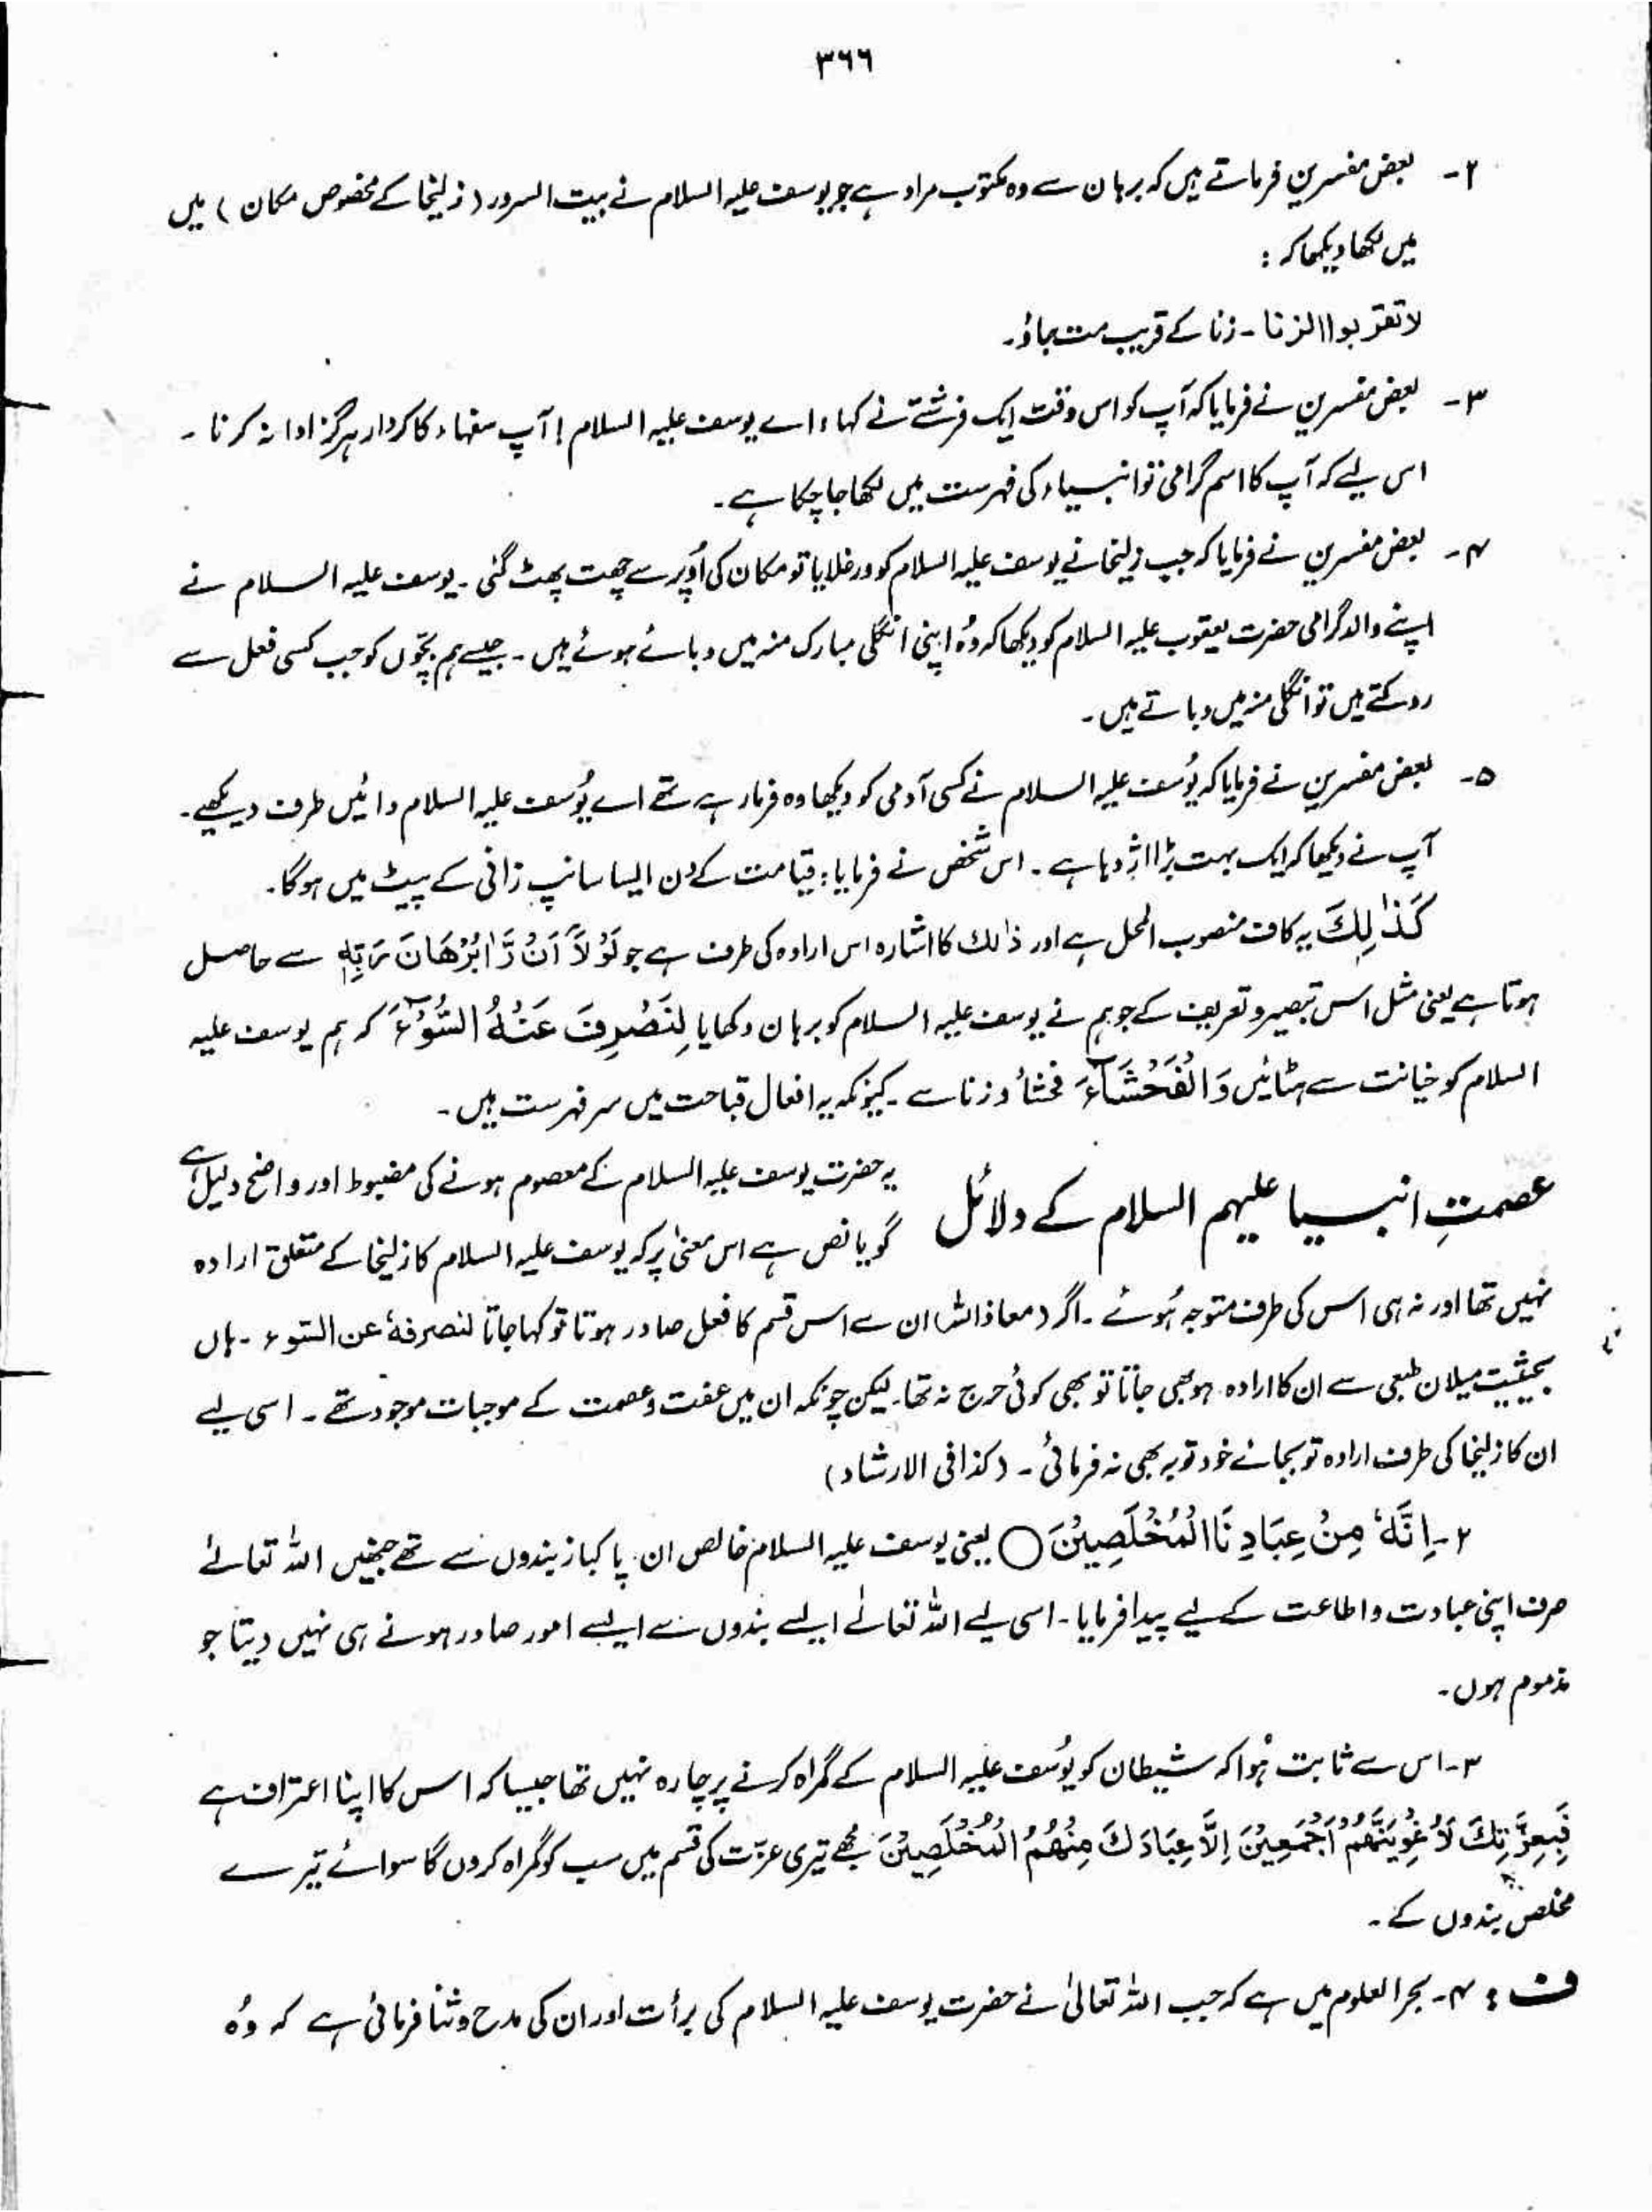 ۳۶۶
۲- بعض مفسرین فرماتے ہیں کہ برہان سے وہ مکتوب مراد ہے جو یوسف علیہ السلام نے بیت السرور (زلیخا کے مخصوص مکان) میں
میں لکھا دیکھا کہ :
لا تقربوا الزنا - زنا کے قریب مت جاؤ۔
۳- بعض مفسرین نے فرمایا کہ آپ کو اس وقت ایک فرشتے نے کہا، اے یوسف علیہ السلام! آپ سفہاء کا کردار ہرگز ادا نہ کرنا۔
اس لیے کہ آپ کا اسم گرامی تو انبیاء کی فہرست میں لکھا جا چکا ہے۔
۴- بعض مفسرین نے فرمایا کہ جب زلیخا نے یوسف علیہ السلام کو ورغلایا تو مکان کی اُوپر سے چھت پھٹ گئی۔ یوسف علیہ السلام نے
اپنے والد گرامی حضرت یعقوب علیہ السلام کو دیکھا کہ وُہ اپنی انگلی مبارک منہ میں دبائے ہوئے ہیں۔ جیسے ہم بچّوں کو جب کسی فعل سے
روکتے ہیں تو انگلی منہ میں دباتے ہیں۔
۵- بعض مفسرین نے فرمایا کہ یُوسف علیہ السلام نے کسی آدمی کو دیکھا وہ فرما رہے تھے اے یُوسف علیہ السلام دائیں طرف دیکھیے۔
آپ نے دیکھا کہ ایک بہت بڑا اژدہا ہے۔ اس شخص نے فرمایا: قیامت کے دن ایسا سانپ زانی کے پیٹ میں ہوگا۔
كَذٰلِكَ یہ کاف منصوب المحل ہے اور ذالک کا اشارہ اس ارادہ کی طرف ہے جو لَوْلَآ اَنْ رَّاٰ بُرْهَانَ رَبِّهٖ سے حاصل
ہوتا ہے یعنی مثل اس تبصیر و تعریف کے جو ہم نے یوسف علیہ السلام کو برہان دکھایا لِنَصْرِفَ عَنْهُ السُّوْٓءَ کہ ہم یوسف علیہ
السلام کو خیانت سے ہٹائیں وَالْفَحْشَآءَ فحشاً و زنا سے۔ کیونکہ یہ افعال قباحت میں سرفہرست ہیں۔
عصمتِ انبیا علیہم السلام کے دلائل یہ حضرت یوسف علیہ السلام کے معصوم ہونے کی مضبوط اور واضح دلیل ہے
گویا نص ہے اس معنیٰ پر کہ یوسف علیہ السلام کا زلیخا کے متعلق ارادہ
نہیں تھا اور نہ ہی اس کی طرف متوجہ ہُوئے۔ اگر (معاذ اللہ) ان سے اس قسم کا فعل صادر ہوتا تو کہا جاتا لنصرفہٗ عن السّوء۔ ہاں
بحیثیت میلان طبعی سے ان کا ارادہ ہو بھی جاتا تو بھی کوئی حرج نہ تھا۔ لیکن چونکہ ان میں عفت و عصمت کے موجبات موجود تھے۔ اسی لیے
ان کا زلیخا کی طرف ارادہ تو بجائے خود توجہ بھی نہ فرمائی۔ (کذا فی الارشاد)
۲- اِنَّهٗ مِنْ عِبَادِنَا الْمُخْلَصِيْنَ ○ یعنی یوسف علیہ السلام خالص ان پاکباز بندوں سے تھے جنھیں اللہ تعالےٰ
صرف اپنی عبادت و اطاعت کے لیے پیدا فرمایا۔ اسی لیے اللہ تعالےٰ ایسے بندوں سے ایسے امور صادر ہونے ہی نہیں دیتا جو
مذموم ہوں۔
۳- اس سے ثابت ہُوا کہ شیطان کو یُوسف علیہ السلام کے گمراہ کرنے پر چارہ نہیں تھا جیسا کہ اس کا اپنا اعتراف ہے
فَبِعِزَّتِكَ لَاُغْوِيَنَّهُمْ اَجْمَعِيْنَ اِلَّا عِبَادَكَ مِنْهُمُ الْمُخْلَصِيْنَ مجھے تیری عزّت کی قسم میں سب کو گمراہ کروں گا سوائے تیرے
مخلص بندوں کے۔
ف : ۴- بحر العلوم میں ہے کہ جب اللہ تعالیٰ نے حضرت یوسف علیہ السلام کی برأت اور ان کی مدح و ثنا فرمائی ہے کہ وُہ